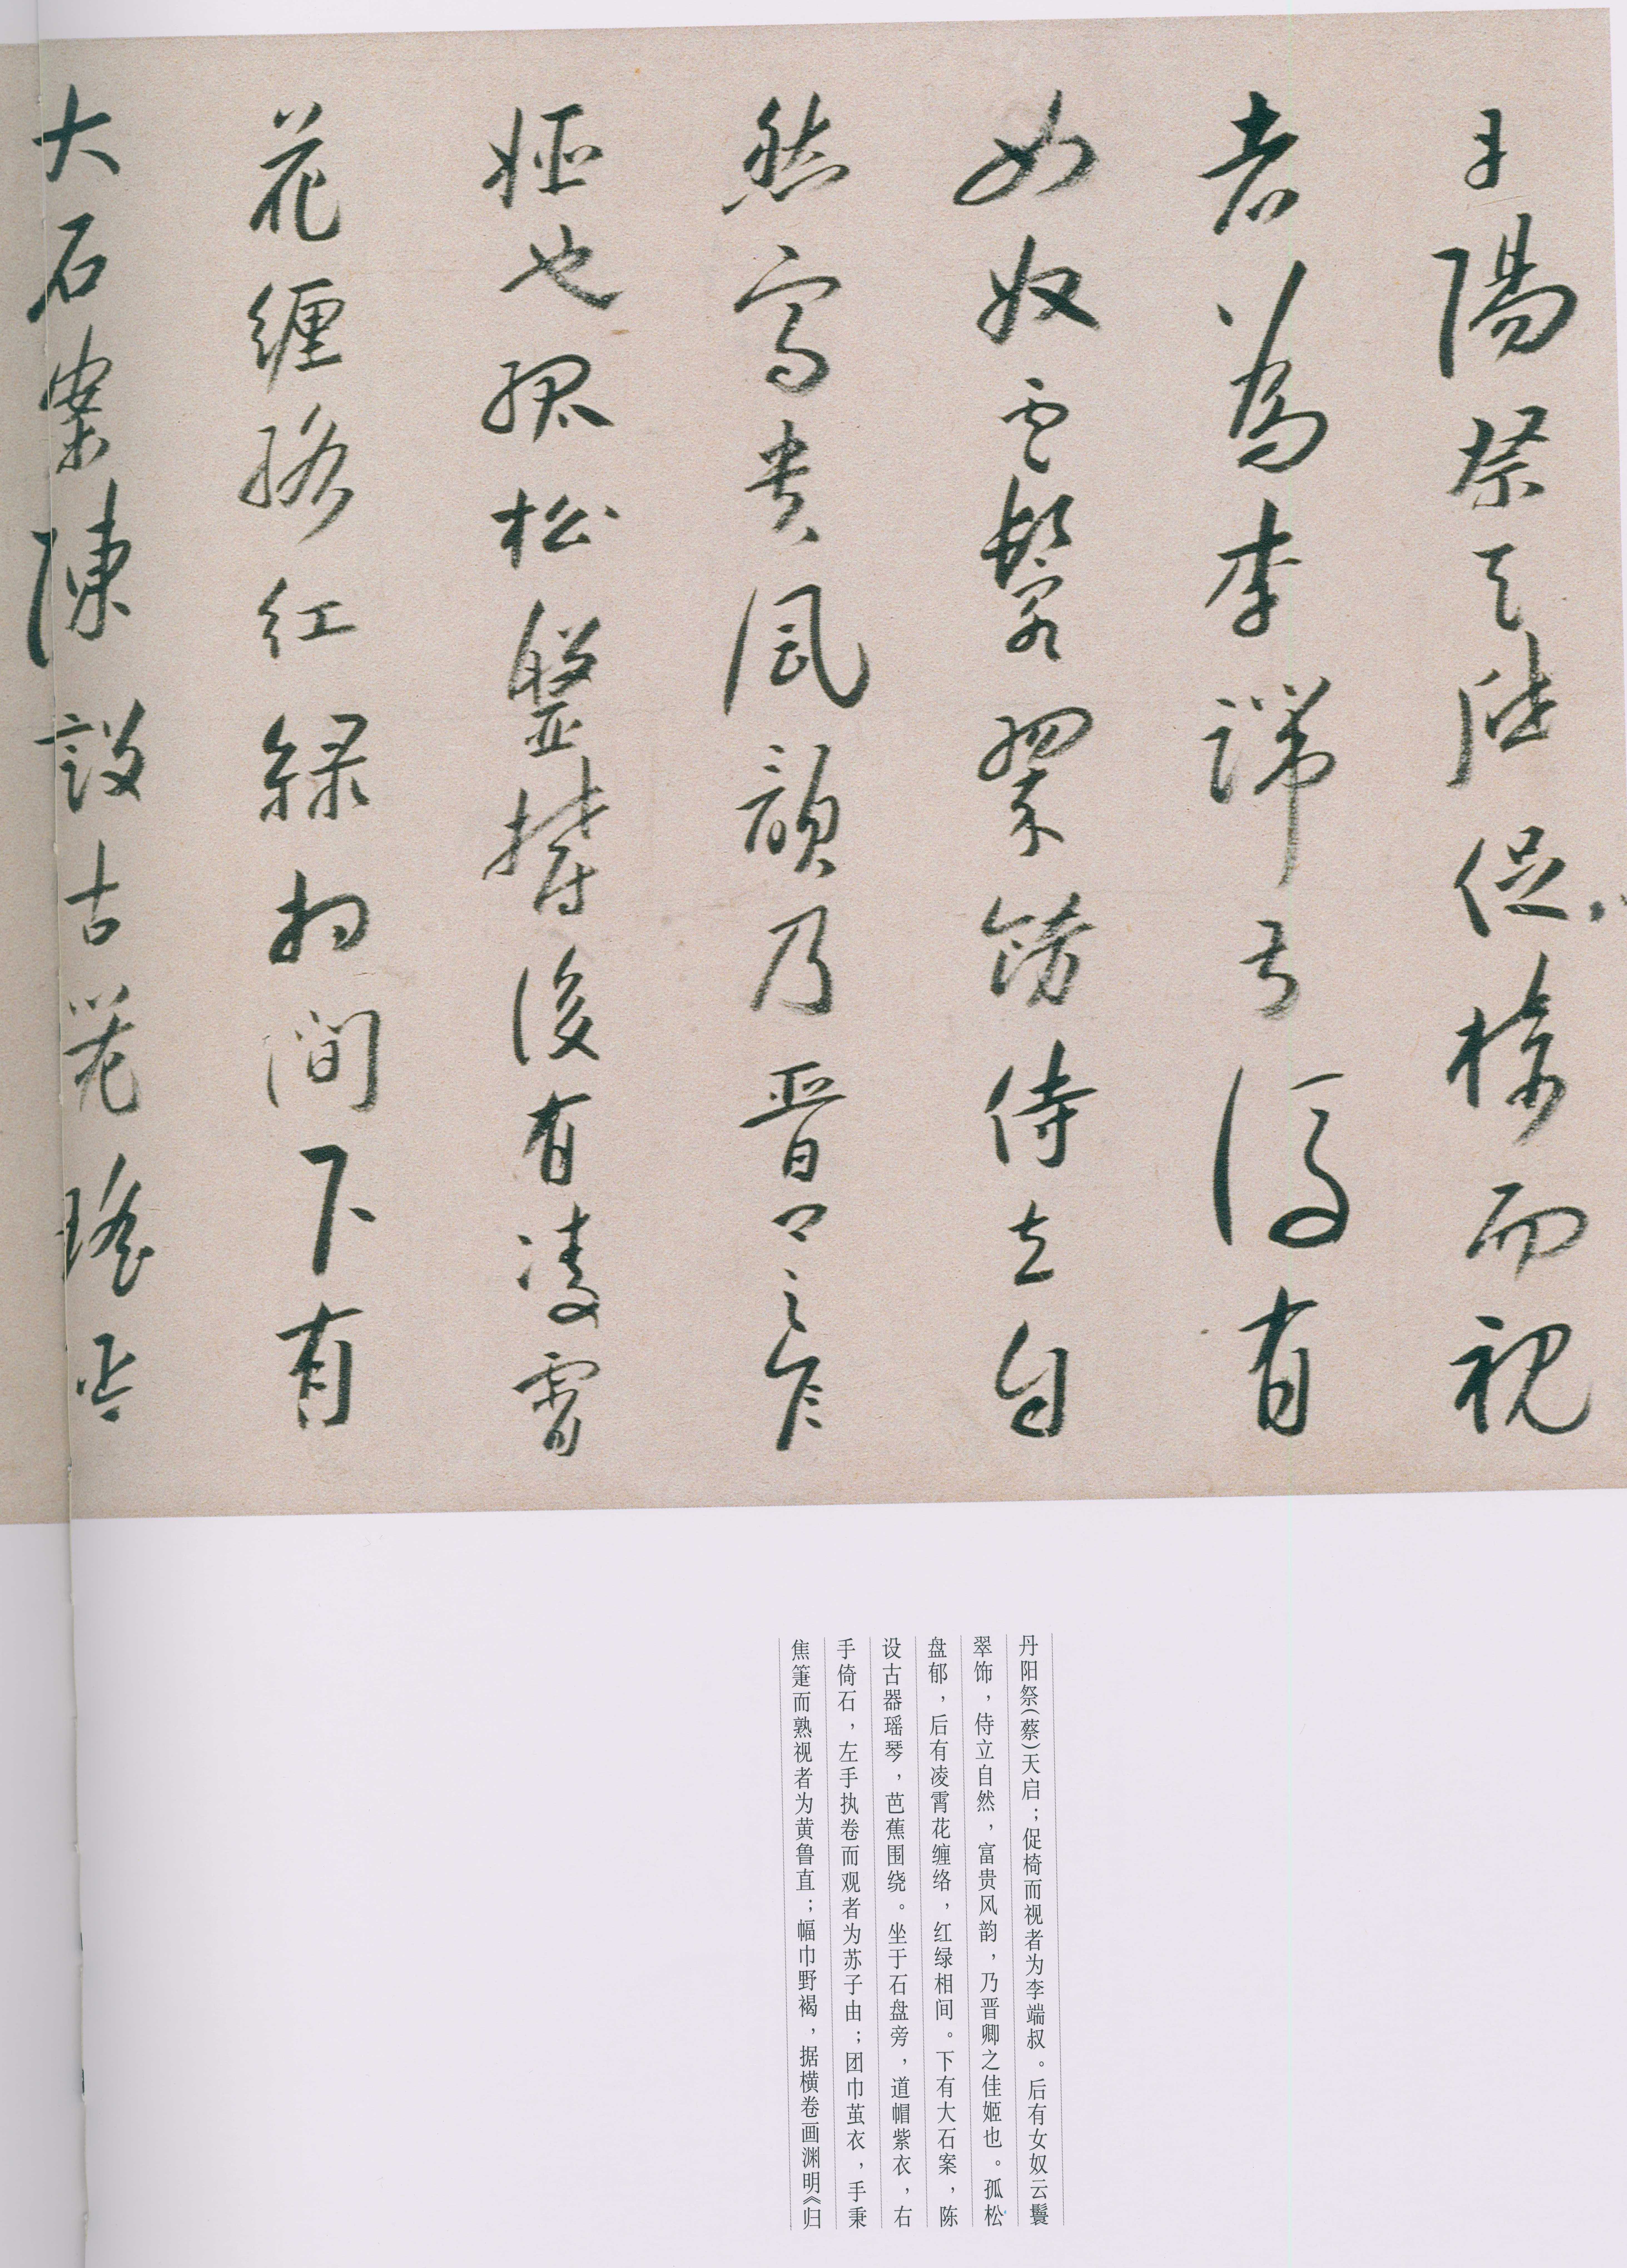 丹陽祭天啓促椅而視
者為李端叔後有
女奴雲鬟翠飾侍立自
然富貴風韻乃晉卿之佳
姬也孤松盤鬱後有凌霄
花纏絡紅綠相間下有
大石案陳設古器瑤琴
丹阳祭(蔡)天启；促椅而视者为李端叔。后有女奴云鬟
翠饰，侍立自然，富贵风韵，乃晋卿之佳姬也。孤松
盘郁，后有凌霄花缠络，红绿相间。下有大石案，陈
设古器瑶琴，芭蕉围绕。坐于石盘旁，道帽紫衣，右
手倚石，左手执卷而观者为苏子由；团巾茧衣，手秉
焦箑而熟视者为黄鲁直；幅巾野褐，据横卷画渊明《归